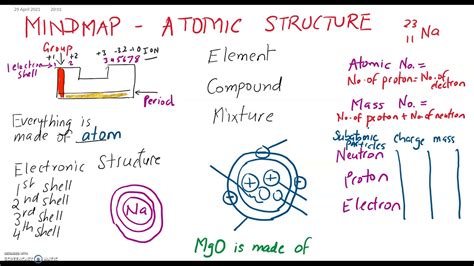 29 April 2021 20:02
MINDMAP - ATOMIC STRUCTURE
23
11 Na
Group
+1 +2 +3 -3 -2 -1 0 ION
1 2 3 0 5 6 7 8
1 electron shell
Period
Everything is
made of atom
Electronic Structure
1st shell
2nd shell
3rd shell
4th shell
Na
Element
Compound
Mixture
MgO is made of
Atomic No. =
No. of proton = No. of
electron
Mass No. =
No. of proton + No. of neutron
Subatomic particles charge mass
Neutron
Proton
Electron